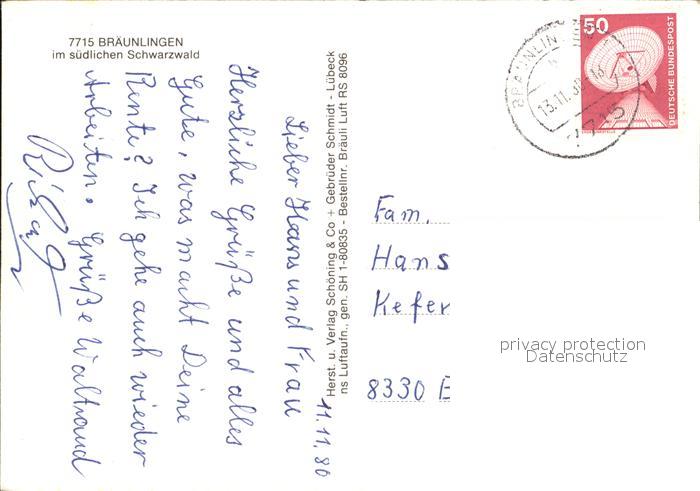 7715 BRÄUNLINGEN
im südlichen Schwarzwald
11.11.80
Lieber Hans und Frau
Herzliche Grüße und alles
Gute, was macht Deine
Rente? Ich gehe auch wieder
Arbeiten. Grüße Waltraud
Herst. u. Verlag Schöning & Co + Gebrüder Schmidt - Lübeck
ns Luftaufn., gen. SH 1-80835 - Bestellnr. Bräuli Luft RS 8096
50
DEUTSCHE BUNDESPOST
13.11.80-13
7715
Fam.
Hans
Kefer
8330 E
privacy protection
Datenschutz